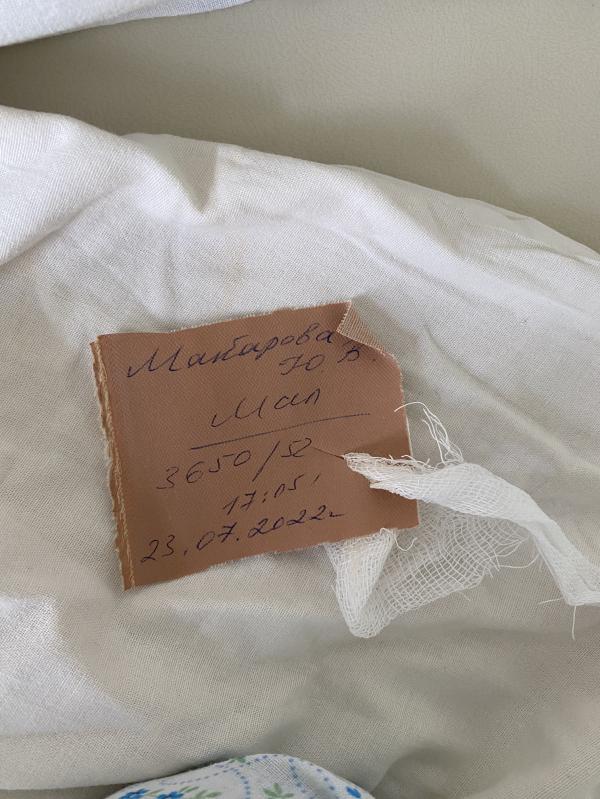 Макарова
Ю. В.
Мал
3650/52
17:05,
23.07.2022г